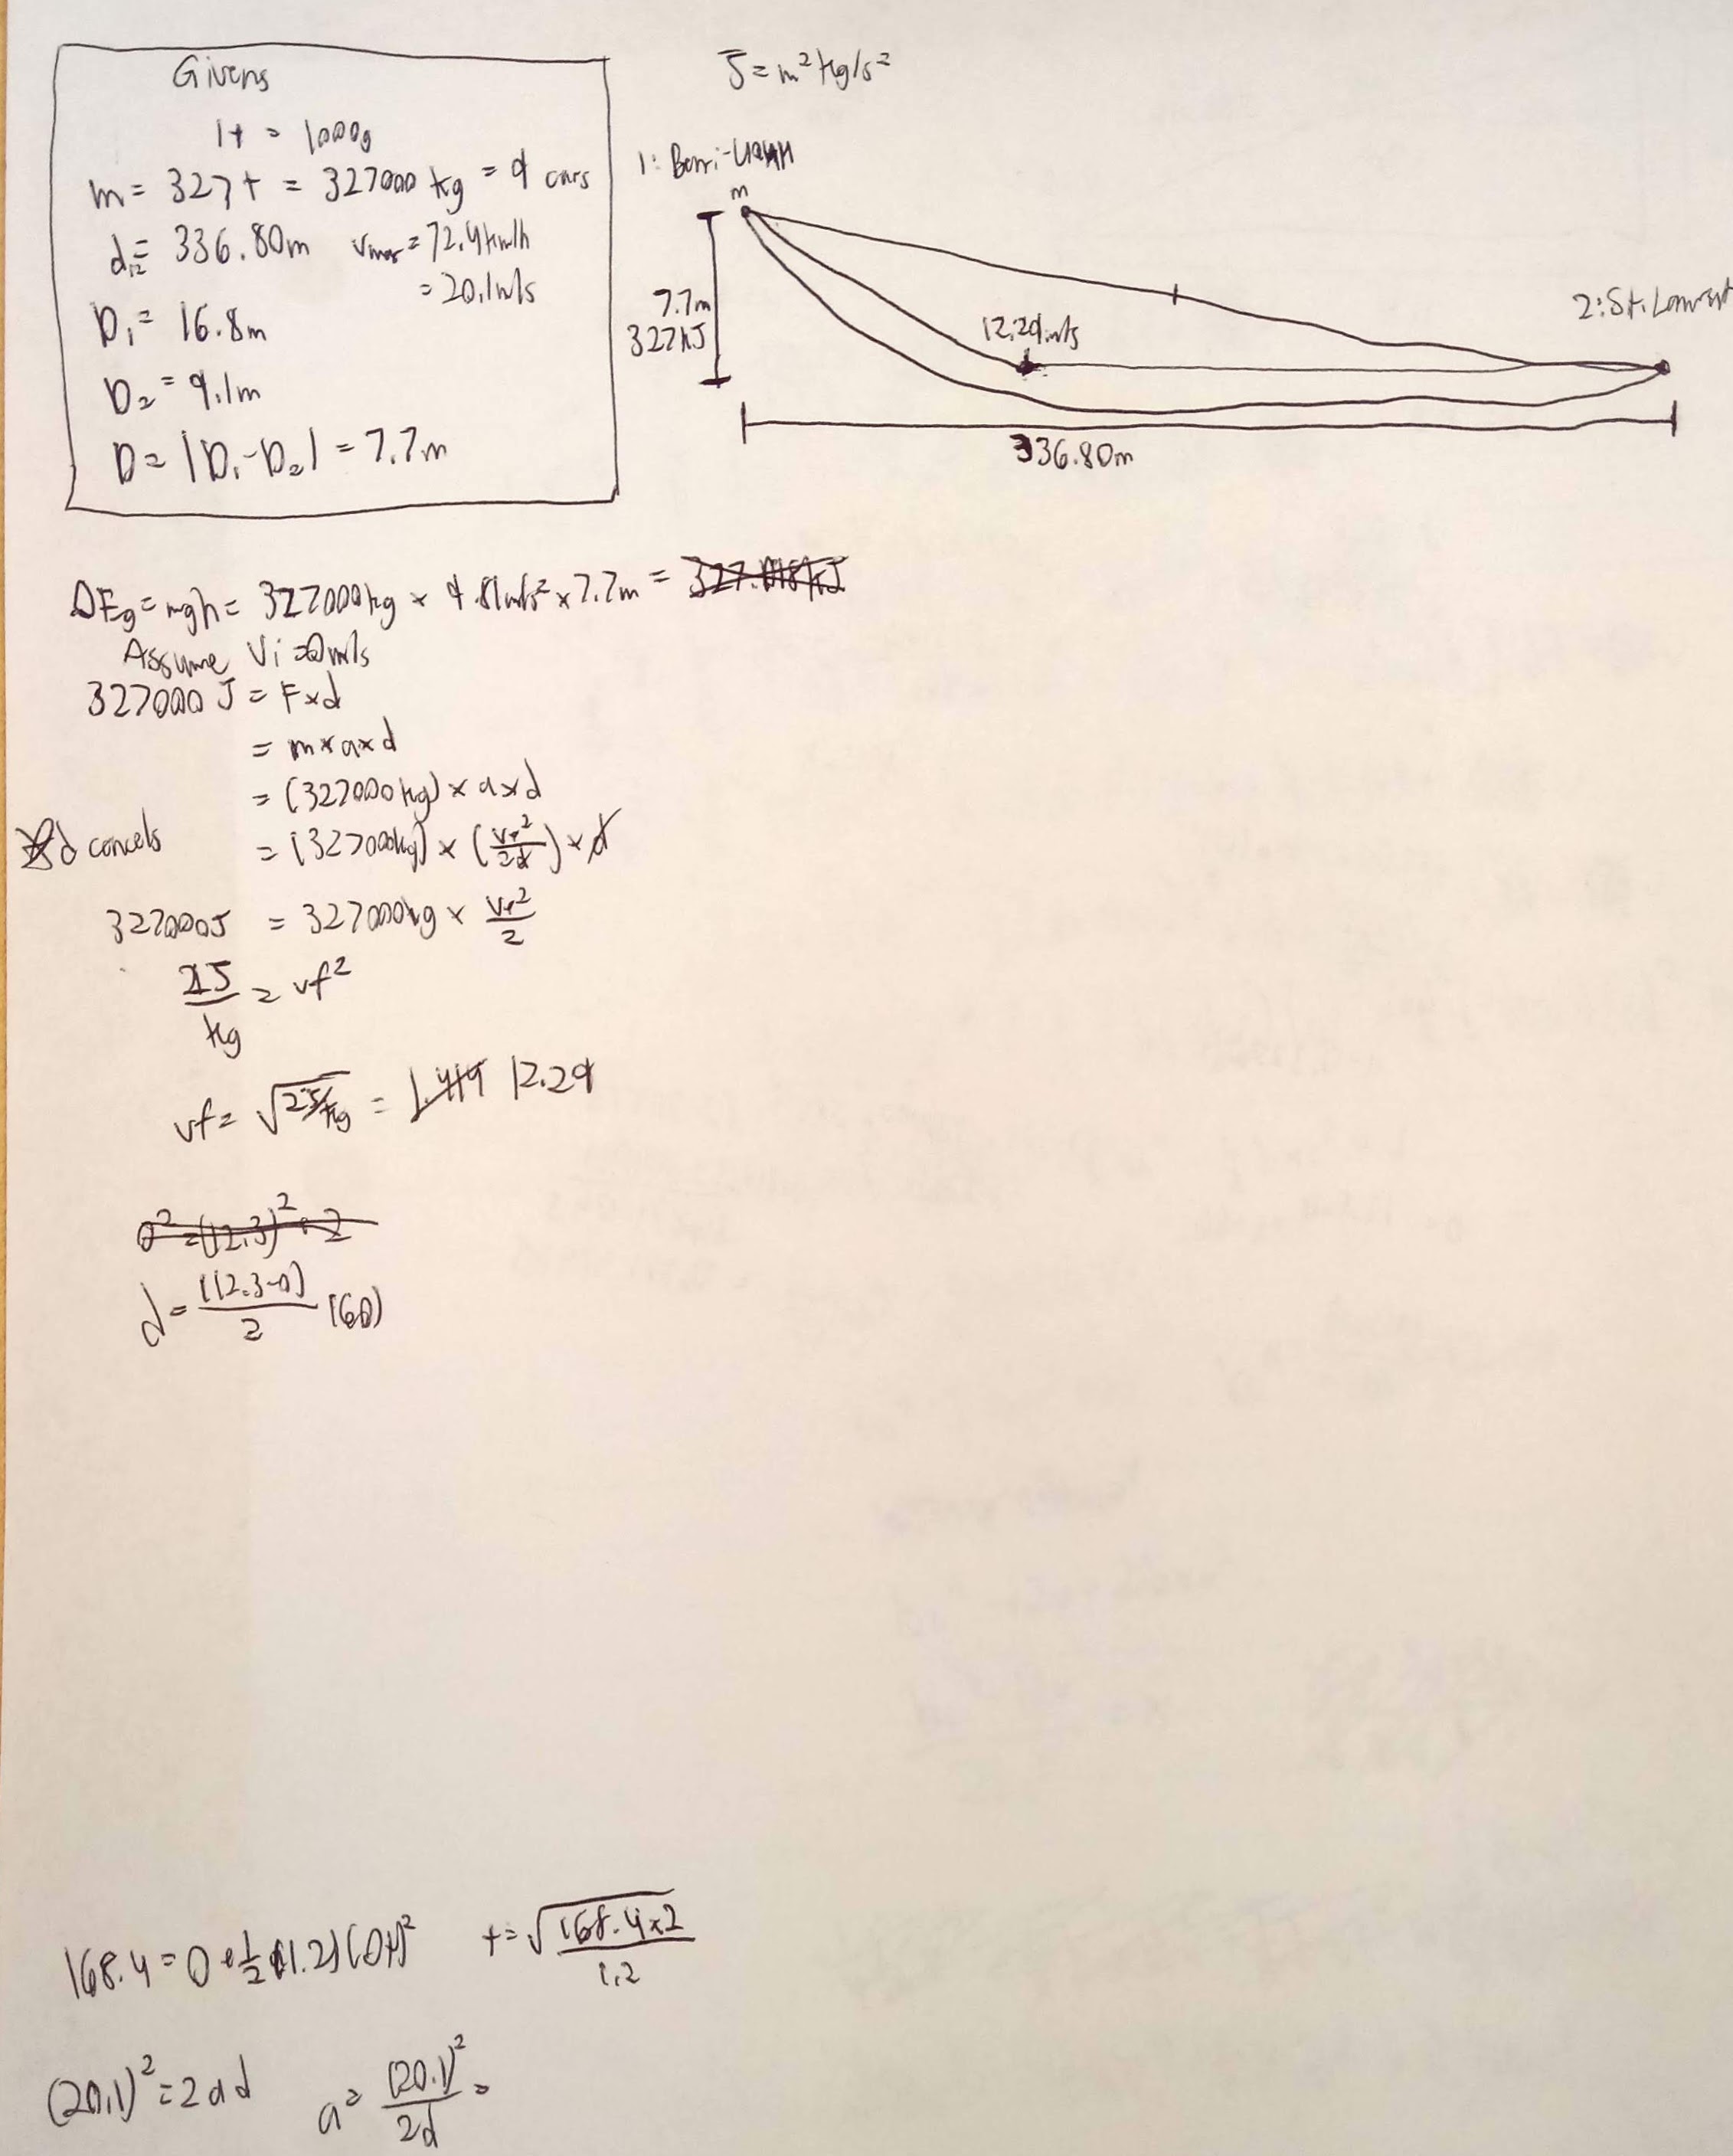 Givens
1t = 1000g
m = 327t = 327000 kg = 9 cars
d₁₂ = 336.80m vmax = 72.4km/h
= 20.1m/s
D₁ = 16.8m
D₂ = 9.1m
D = |D₁-D₂| = 7.7m
J = m²kg/s²
1: Berri-UQAM
m
7.7m
327kJ
12.29m/s
2: St. Laurent
336.80m
ΔEg = mgh = 327000kg × 9.81m/s² × 7.7m =
Assume Vi = 0m/s
327000 J = F×d
= m×a×d
= (327000kg) × a×d
d cancels = (327000kg) × (vf²/2d) × d
327000J = 327000kg × vf²/2
2J/kg = vf²
vf = √2J/kg = 1.419 12.29
0² = (12.3)² + 2
d = (12.3-0)/2 (60)
168.4 = 0 + 1/2 (1.2)(Δt)² t = √168.4×2/1.2
(20.1)² = 2ad a = (20.1)²/2d =